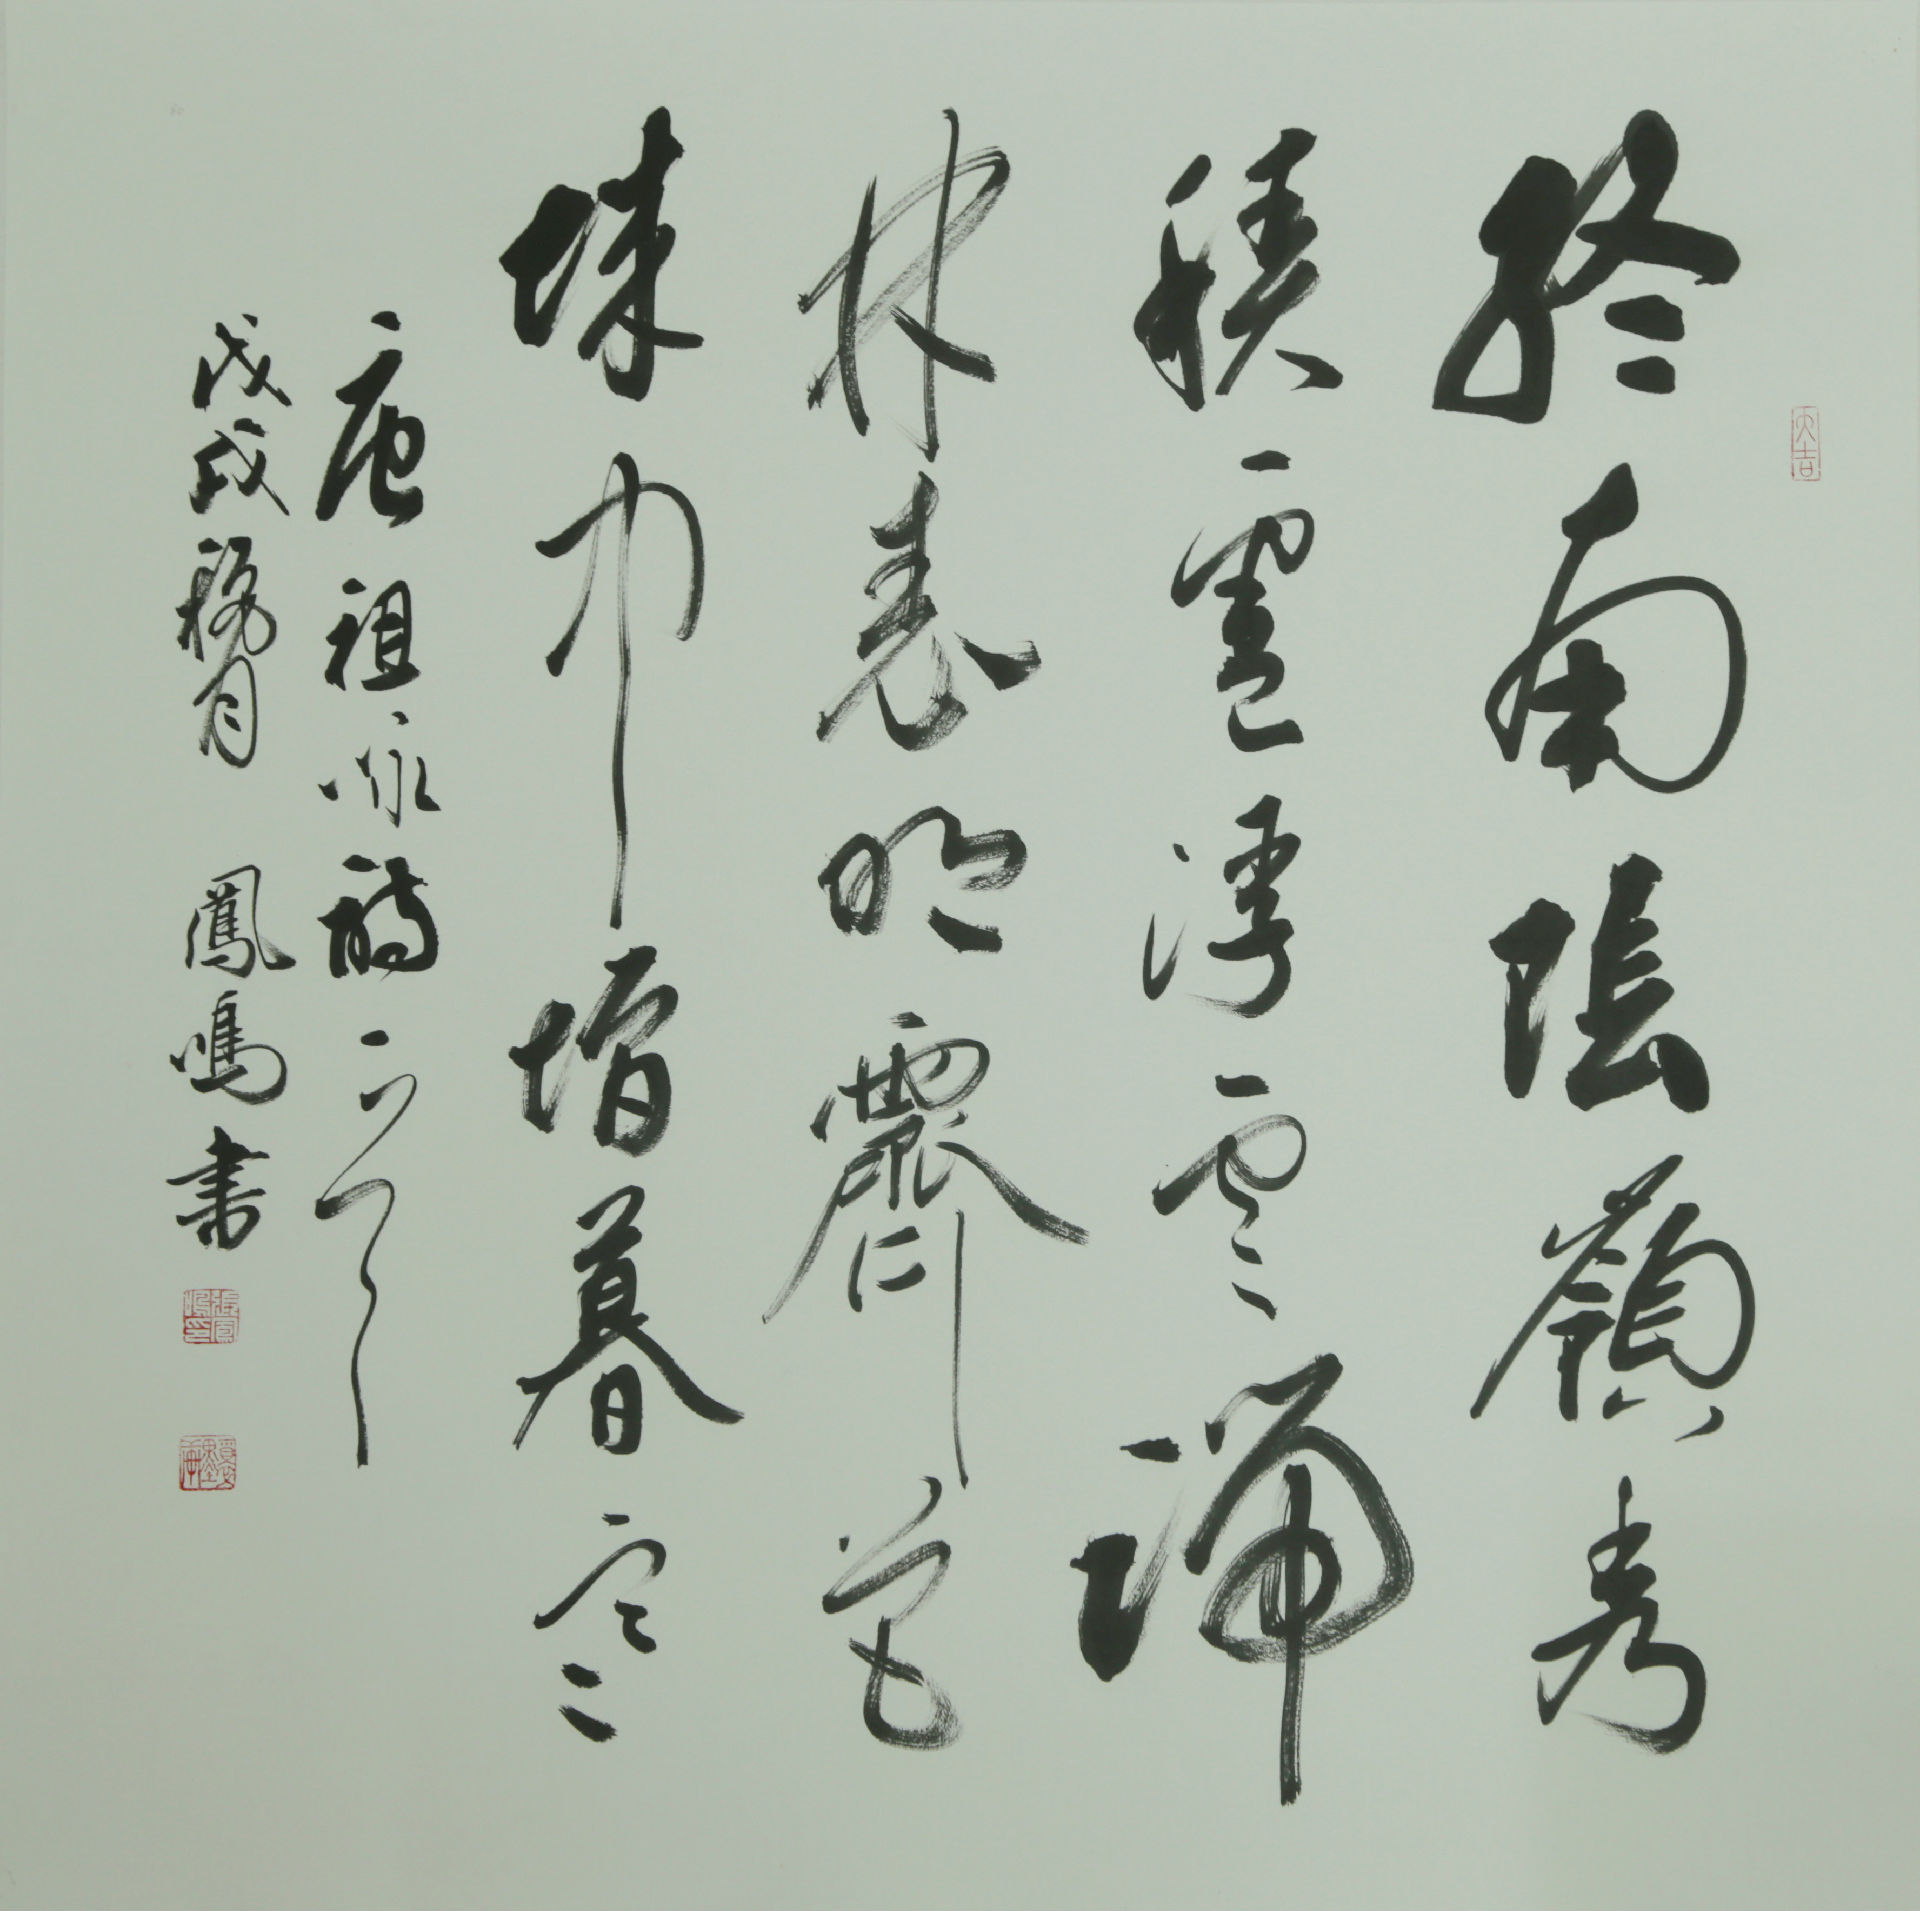 大吉
終南陰嶺秀
積雪浮雲端
林表明霽色
城中增暮寒
唐祖咏詩一首
戊戌 月 鳳鳴书
張鳳鳴印